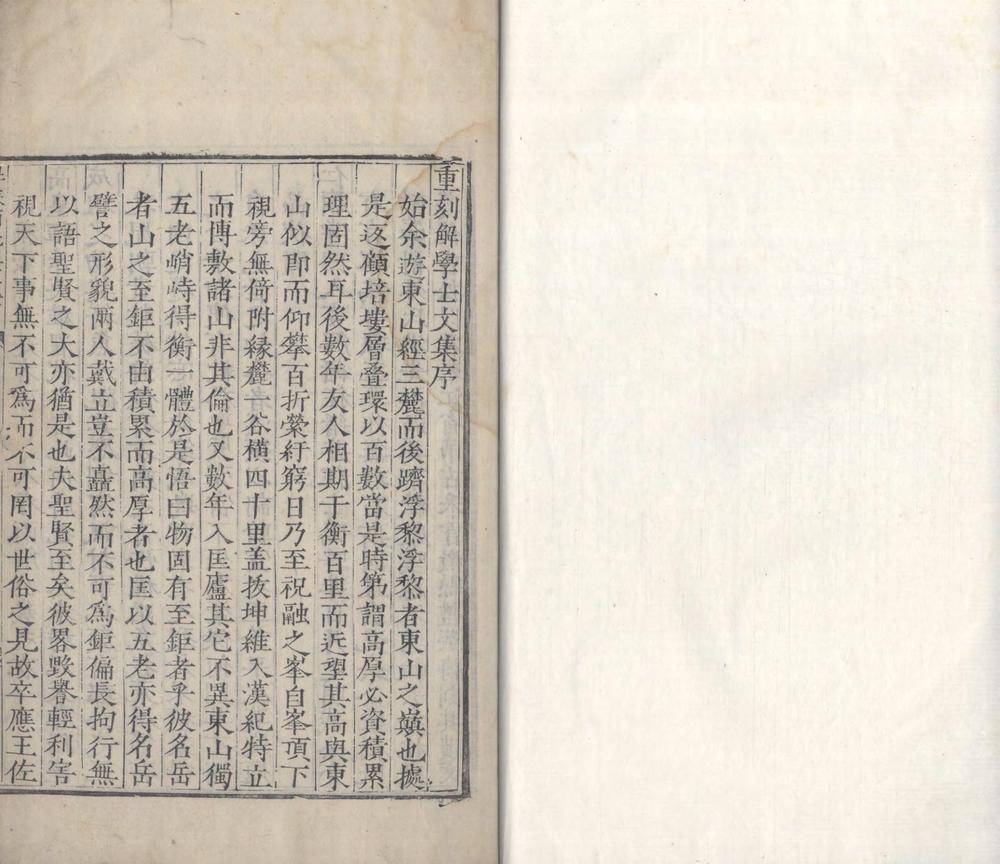 重刻解學士文集序
始余遊東山經三麓而後躋浮黎浮黎者東山之巔也據
是返顧培塿層疊環以百數當是時第謂高厚必資積累
理固然耳後數年友人相期于衡百里而近望其高與東
山似卽而仰攀百折縈紆窮日乃至祝融之峯自峯頂下
視旁無倚附緣麓一谷橫四十里盖拔坤維入漢紀特立
而傳敷諸山非其倫也又數年入匡廬其它不異東山獨
五老峭峙得衡一體於是悟曰物固有至鉅者乎彼名岳
者山之至鉅不由積累而高厚者也匡以五老亦得名岳
譬之形貌兩人戴立豈不矗然而不可爲鉅偏長拘行無
以語聖賢之大亦猶是也夫聖賢至矣彼畧毀譽輕利害
視天下事無不可爲而不可罔以世俗之見故卒應王佐